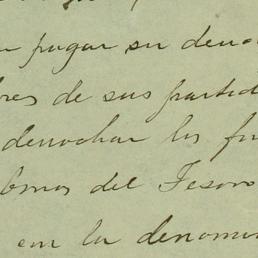 pagar su deuda
res de sus partid
derrochar los fu
del Tesoro
con la denomi